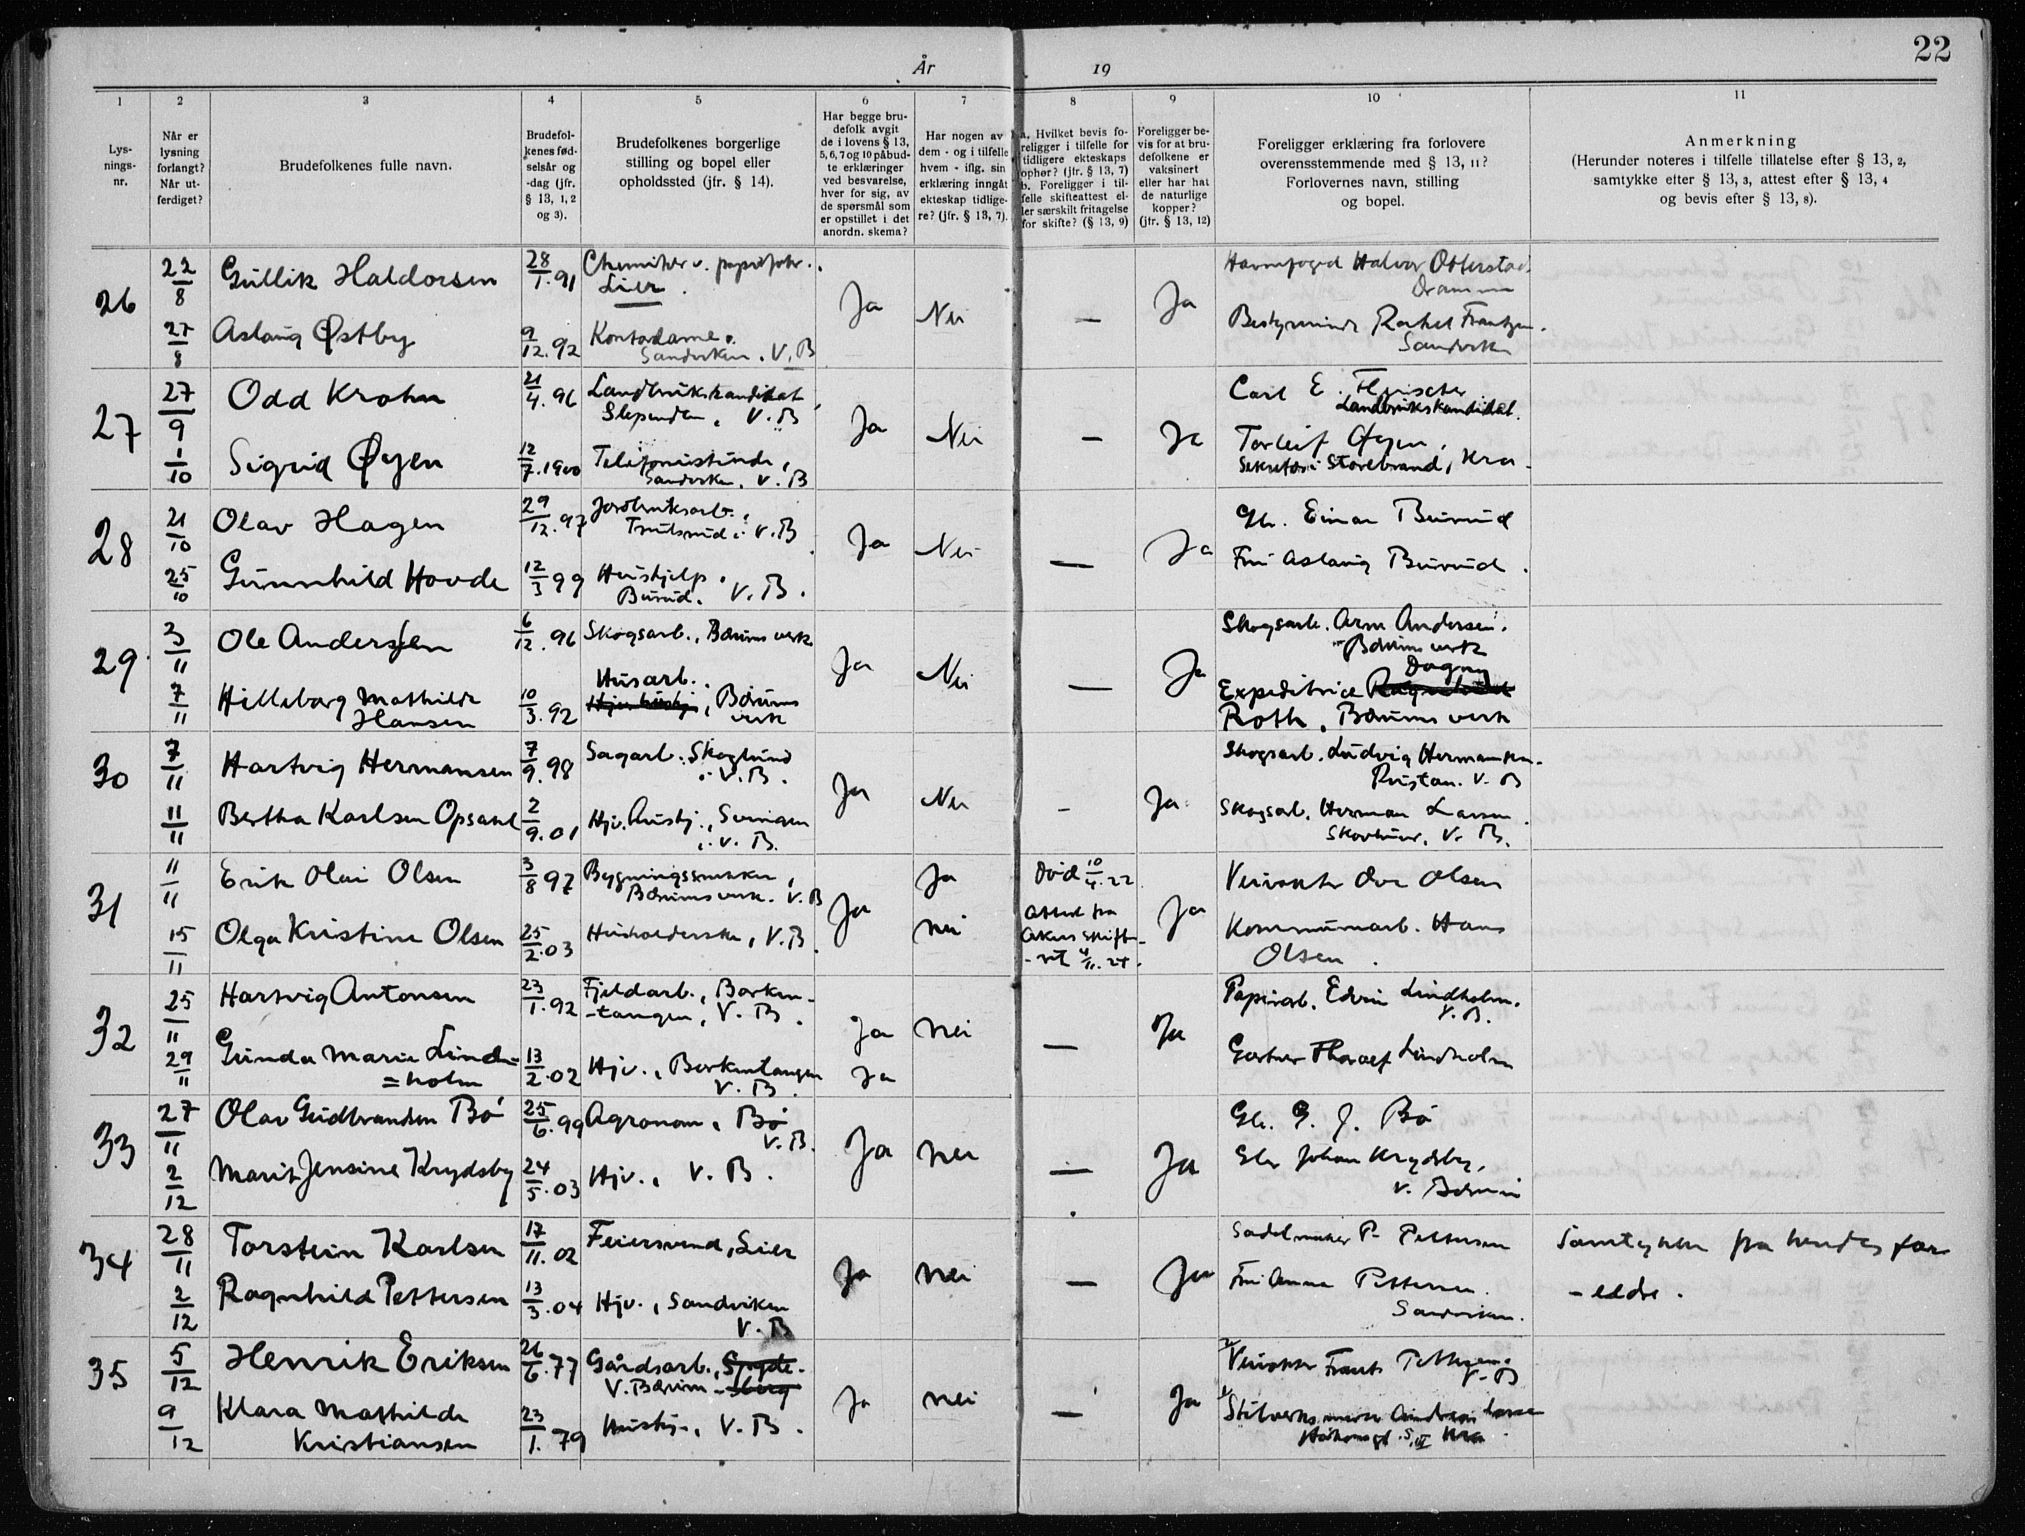 22
År 19
1 2 3 4 5 6 7 8 9 10 11
Lys-
nings-
nr.
Når er
lysning
forlangt?
Når ut-
ferdiget?
Brudefolkenes fulle navn.
Brudefol-
kenes fød-
selsår og
-dag (jfr.
§ 13, 1, 2
og 3).
Brudefolkenes borgerlige
stilling og bopel eller
opholdssted (jfr. § 14).
Har begge bru-
defolk avgit
de i lovens § 13,
5, 6, 7 og 10 påbud-
te erklæringer
ved besvarelse,
hver for sig, av
de spørsmål som
er opstillet i det
anordn. skema?
Har nogen av
dem - og i tilfelle
hvem - iflg. sin
erklæring inngåt
ekteskap tidlige-
re? (jfr. § 13, 7).
a. Hvilket bevis fo-
religger i tilfelle for
tidligere ekteskaps
ophør? (jfr. § 13, 7)
b. Foreligger i til-
felle skifteattest el-
ler særskilt fritagelse
for skifte? (§ 13, 9)
Foreligger be-
vis for at bru-
defolkene er
vaksinert
eller har hat
de naturlige
kopper?
(jfr. § 13, 12)
Foreligger erklæring fra forlovere
overensstemmende med § 13, 11?
Forlovernes navn, stilling
og bopel.
Anmerkning
(Herunder noteres i tilfelle tillatelse efter § 13, 2,
samtykke efter § 13, 3, attest efter § 13, 4
og bevis efter § 13, 8).
26 22/8 Gullik Haldorsen 28/1.91 Chemiker v. papirfabr.
Lier Ja Nei — Ja Havnefoged Halvor Otterstad
Drammen
27/8 Aslaug Østby 9/12.92 Kontordame.
Sandviken. V. B Bestyrerinde Rachel Frantzen.
Sandviken
27 27/9 Odd Krohn 21/4.96 Landbrukskandidat
Slependen, V. B Ja Nei — Ja Carl E. Fleischer
Landbrukskandidat.
1/10 Sigrid Øyen 12/7.1900 Telefonistinde,
Sandviken. V. B Torleif Øyen,
Sekretær i Storebrand, Kra.
28 21/10 Olav Hagen 29/12.97 Jordbruksarb.,
V. B Ja Nei — Ja Gbr. Einar Burud
25/10 Gunnhild Hovde 12/3 99 Hushjelp,
Burud. V. B. Fru Aslaug Burud.
29 3/11 Ole Andersen 6/12.96 Skogsarb., Bærums verk Ja Nei — Ja Skogsarb. Arne Andersen.
Bærums verk
7/11 Hilleborg Mathilde
Hansen 10/3.92 Husarb.
Bærums
verk Dagny
Expeditrice Ragnhild
Roth, Bærums verk
30 7/11 Hartvig Hermansen 7/9.98 Sagarb. Skoglund
i V. B. Ja Nei - Ja Skogsarb. Ludvig Hermansen.
V. B
11/11 Bertha Karlsen Opsahl 2/9.01 Hjv. hushj., Svingen
i V. B. Skogsarb. Herman Larsen.
V. B.
31 11/11 Erik Olai Olsen 3/8 97 Bygningssnekker,
Bærums verk. V. B Ja Ja Død 10/4.22 Ja Veivokter Ove Olsen
15/11 Olga Kristine Olsen 25/2.03 Husholderske, V. B. nei Attest fra
Akers skifte-
-ret 4/11.24. Kommunearb. Hans
Olsen.
32 25/11 Hartvig Antonsen 23/1.92 Fjeldarb., Borken-
-tangen, V. B. Ja nei — Ja Papirarb. Edvin Lindholm.
V. B.
29/11 Gunda Marie Lind-
=holm 13/2.02 Hjv., Borkentangen
V. B. Ja Gartner Tharaef Lindholm
33 27/11 Olav Gudbrandsen Bø 25/6.99 Agronom, Bø
V. B. Ja nei — Ja Gbr. G. J. Bø
2/12 Marit Jensine Krydsby 24/5.03 Hjv., V. B. Gbr Johan Krydsby,
V. Bærum
34 28/11 Torstein Karlsen 17/11.02 Feiersvend, Lier Ja nei — Ja Sadelmaker P. Pettersen Samtykke fra hendes for-
2/12 Ragnhild Pettersen 13/3.04 Hjv., Sandviken
V. B Fru Anna Pettersen.
Sandviken. -eldre.
35 5/12 Henrik Eriksen 26/6.77 Gårdsarb., Spyde-
V. Bærum -berg Ja nei — Ja Veivokter Frants Pettersen.
V. B
9/12 Klara Mathilde
Kristiansen 23/1.79 Hushj., V. B. Andreas Larsen
Kra